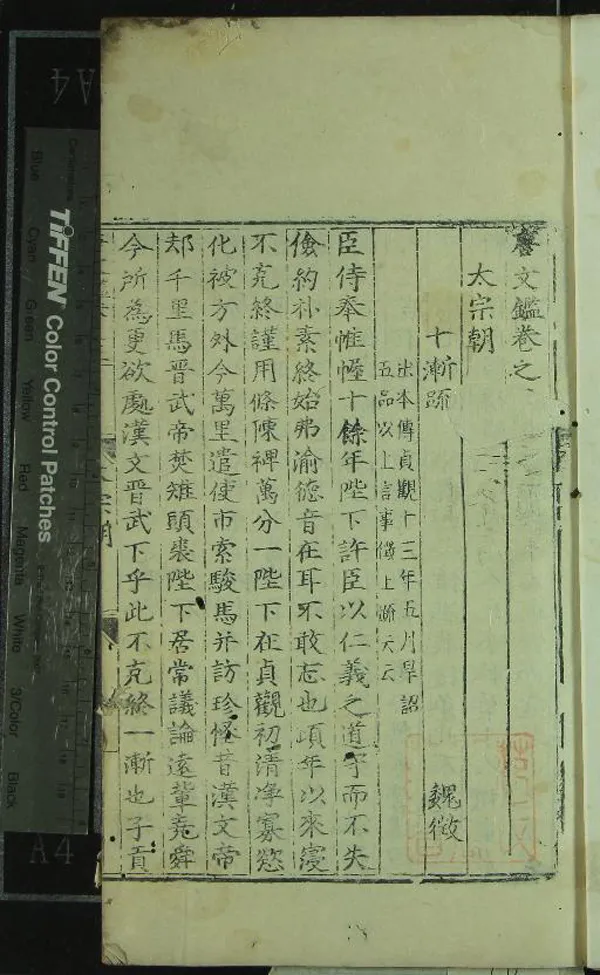 唐文鑑卷之
太宗朝
十漸疏
魏徵
出本傳貞觀十三年五月旱詔
五品以上言事徵上疏大云
臣侍奉帷幄十餘年陛下許臣以仁義之道守而不失
儉約朴素終始弗渝德音在耳不敢忘也頃年以來寖
不克終謹用條陳裨萬分一陛下在貞觀初清淨寡慾
化被方外今萬里遣使市索駿馬并訪珍怪昔漢文帝
却千里馬晉武帝焚雉頭裘陛下居常議論遠輩堯舜
今所爲更欲處漢文晉武下乎此不克終一漸也子貢
TIFFEN Color Control Patches
Blue
Cyan
Green
Yellow
Red
Magenta
White
3/Color
Black
A4
A4